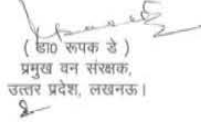 ( डा० रूपक डे )
प्रमुख वन संरक्षक,
उत्तर प्रदेश, लखनऊ।